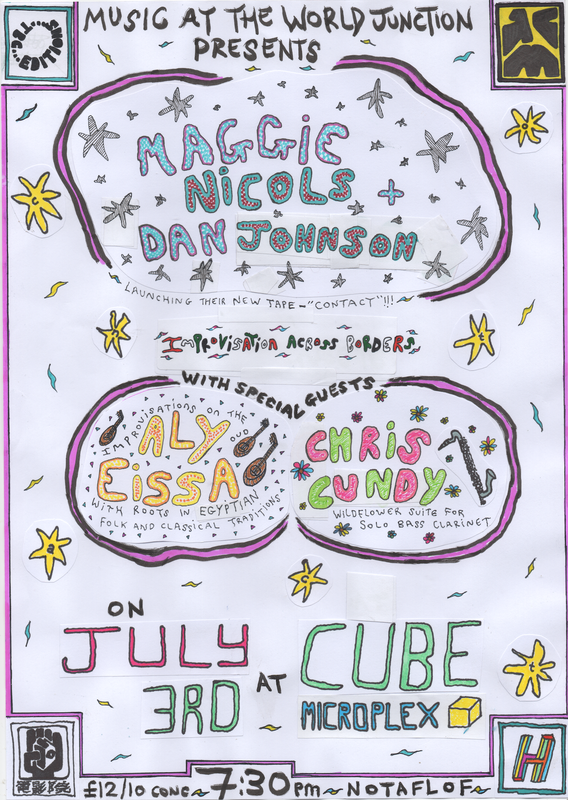 TBC...EDITIONS
MUSIC AT THE WORLD JUNCTION
PRESENTS
MAGGIE
NICOLS +
DAN JOHNSON
LAUNCHING THEIR NEW TAPE - "CONTACT"!!!
c
o
n
t
IMPROVISATION ACROSS BORDERS
WITH SPECIAL GUESTS
IMPROVISATIONS ON THE OUD
ALY
EISSA
WITH ROOTS IN EGYPTIAN
FOLK AND CLASSICAL TRADITIONS
CHRIS
CUNDY
WILDFLOWER SUITE FOR
SOLO BASS CLARINET
a
c
t
ON
JULY
3RD
AT
CUBE
MICROPLEX
電影院
£12/10 CONC ~ 7:30pm ~ NOTAFLOF ~
H